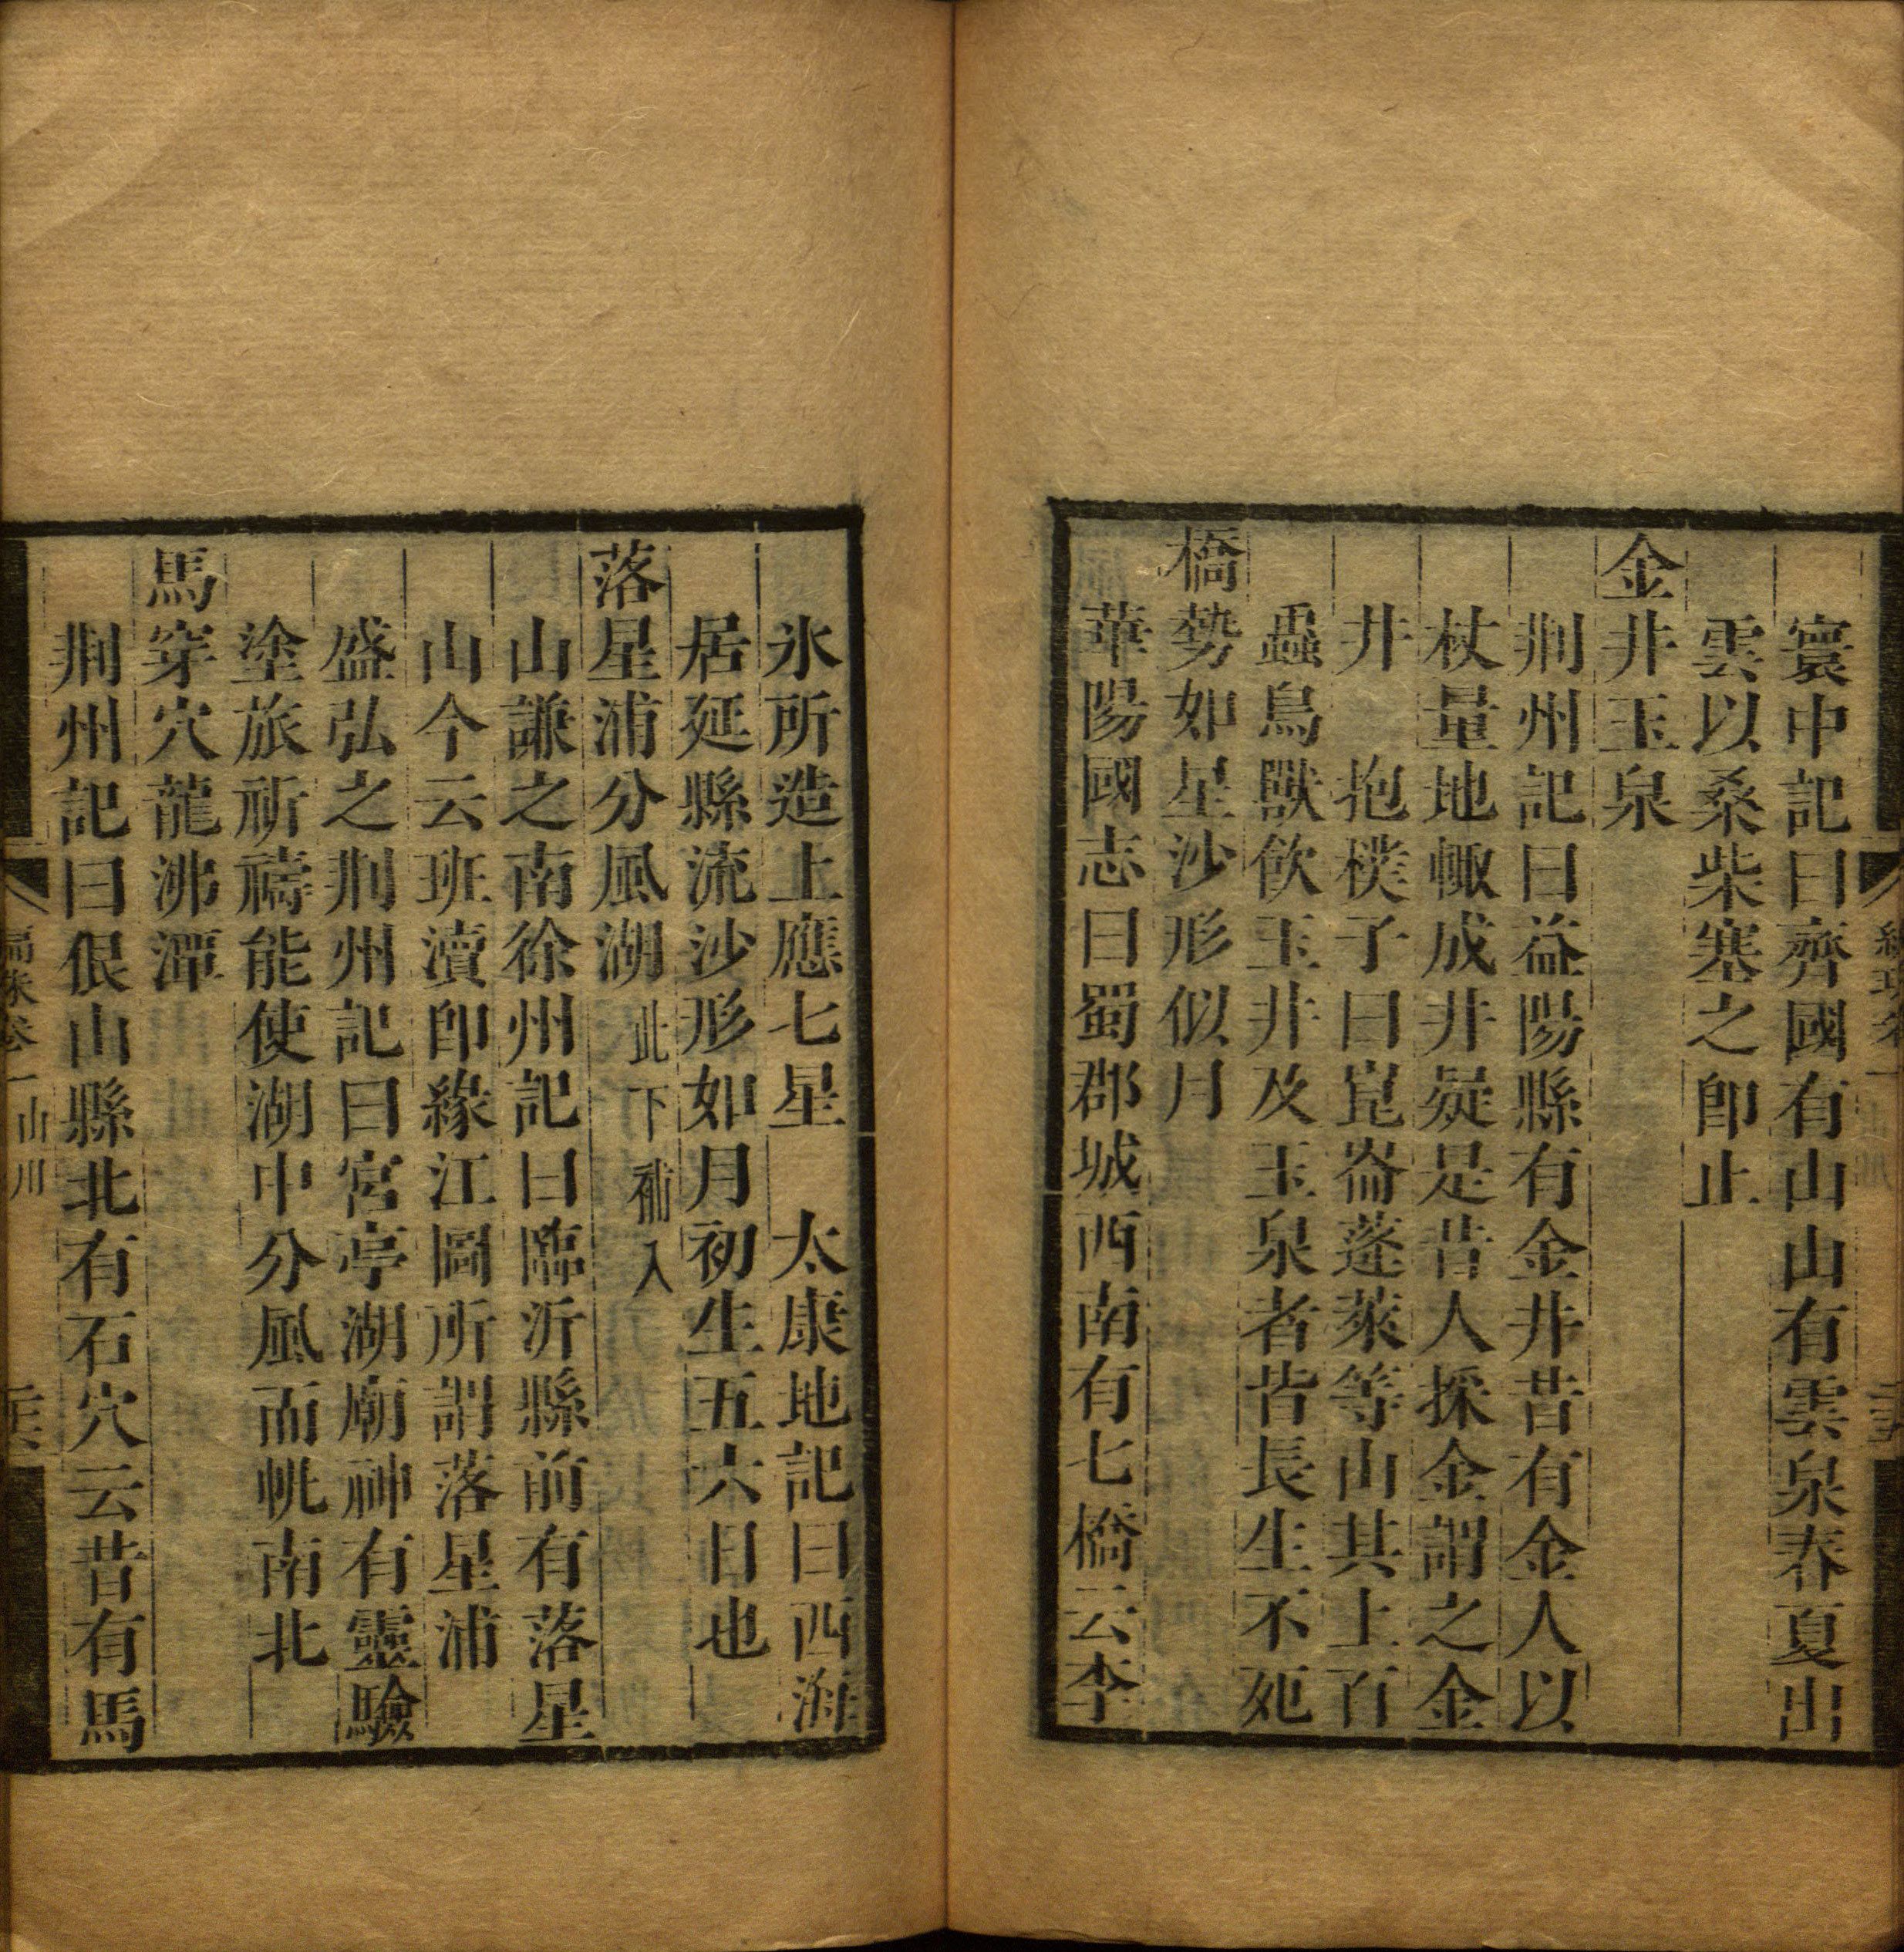 寰中記曰齊國有山山有雲泉春夏出
雲以桑柴塞之卽止
金井玉泉
荆州記曰益陽縣有金井昔有金人以
杖量地輙成井疑是昔人採金謂之金
井　抱樸子曰崑崙蓬萊等山其上百
蟲鳥獸飲玉井及玉泉者皆長生不死
橋勢如星沙形似月
華陽國志曰蜀郡城西南有七橋云李
氷所造上應七星　太康地記曰西海
居延縣流沙形如月初生五六日也
落星浦分風湖此下補入
山謙之南徐州記曰臨沂縣前有落星
山今云班瀆卽緣江圖所謂落星浦
盛弘之荆州記曰宮亭湖廟神有靈驗
塗旅祈禱能使湖中分風而帆南北
馬穿穴龍沸潭
荆州記曰佷山縣北有石穴云昔有馬
編珠卷一
山川